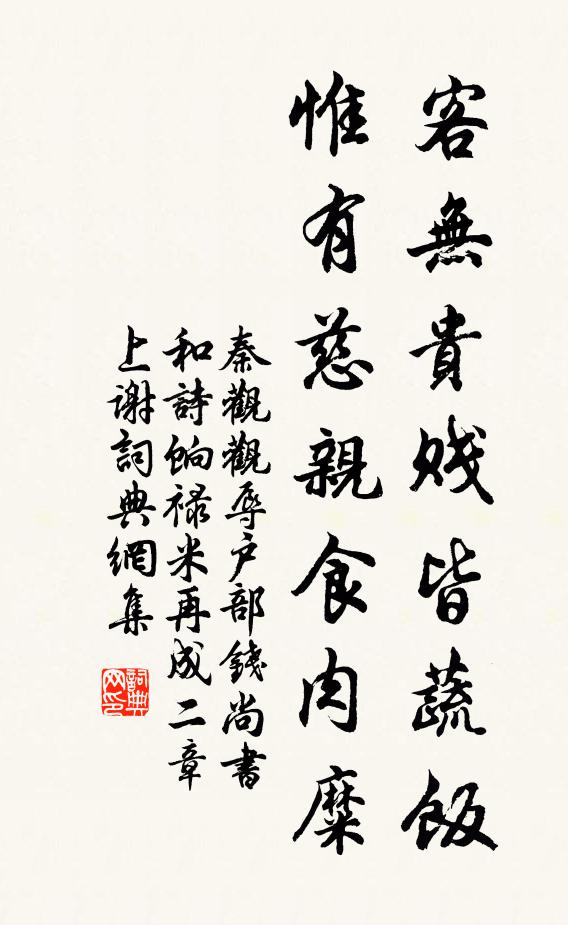 客無貴賤皆蔬飯
惟有慈親食肉糜
秦觀觀辱户部錢尚書
和詩餉禄米再成二章
上谢詞典網集
詞典
网印